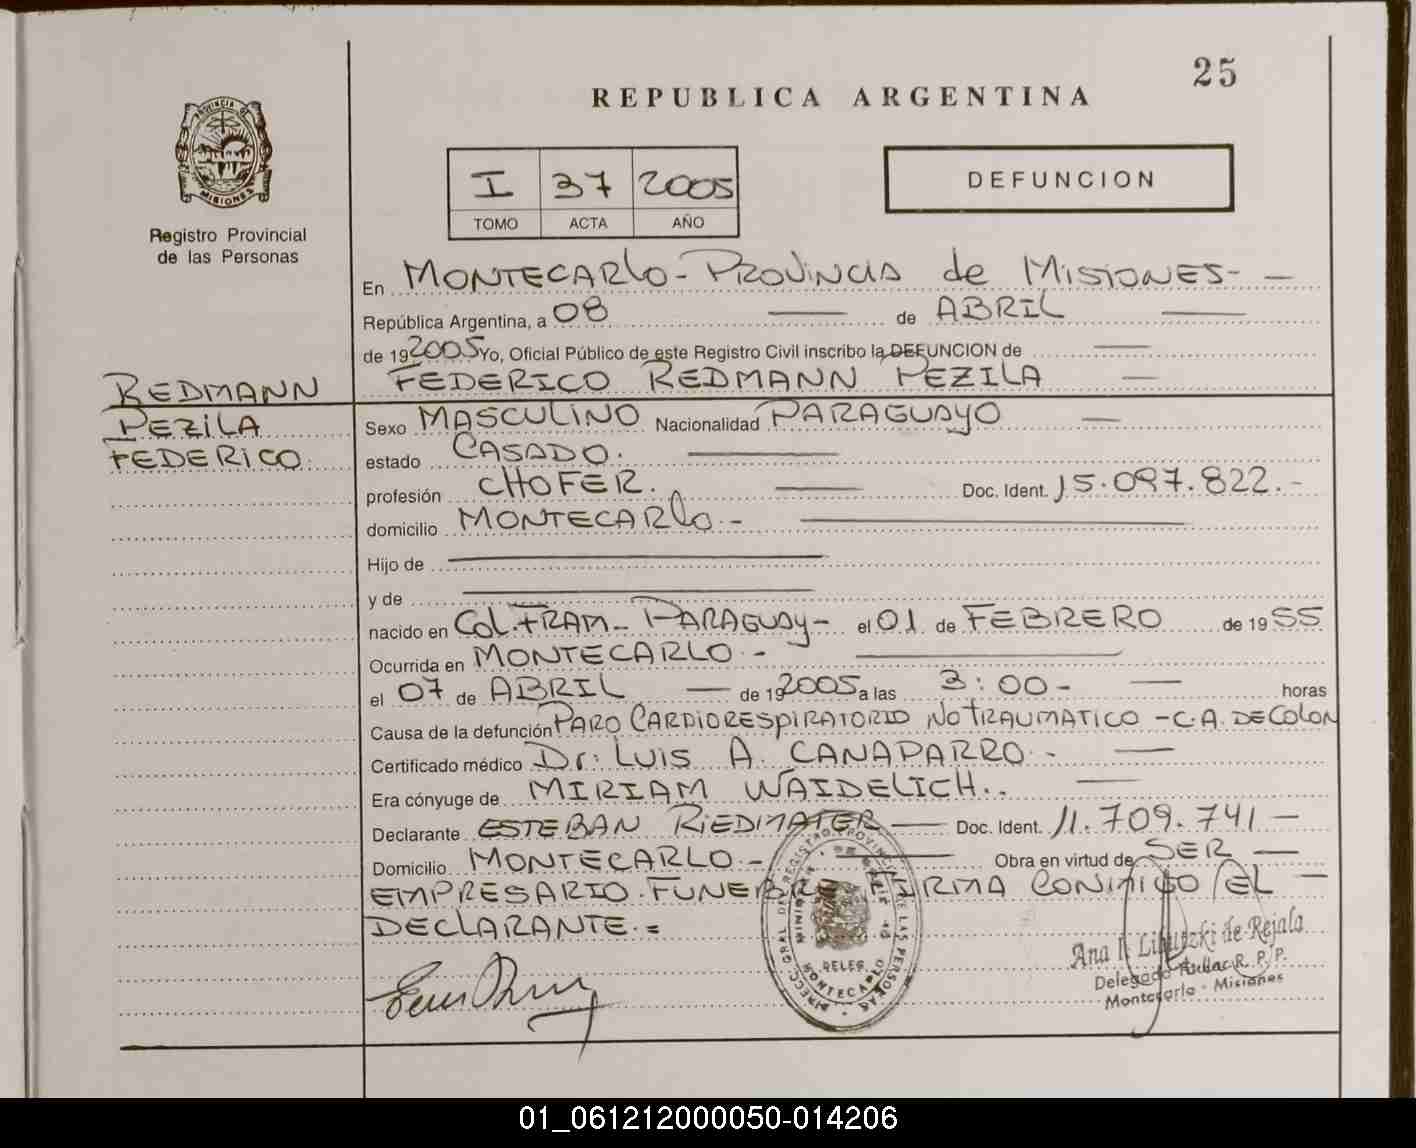 25
REPUBLICA ARGENTINA
PROVINCIA DE
MISIONES
Registro Provincial
de las Personas
I 37 2005
TOMO ACTA AÑO
DEFUNCION
En MONTECARLO - PROVINCIA de MISIONES -
República Argentina, a 08 de ABRIL
de 19 2005 Yo, Oficial Público de este Registro Civil inscribo la DEFUNCION de
FEDERICO REDMANN PEZILA
REDMANN
PEZILA
FEDERICO
Sexo MASCULINO Nacionalidad PARAGUAYO
estado CASADO.
profesión CHOFER. Doc. Ident. 15.097.822.-
domicilio MONTECARLO.-
Hijo de
y de
nacido en COL. FRAM - PARAGUAY - el 01 de FEBRERO de 1955
Ocurrida en MONTECARLO.-
el 07 de ABRIL de 19 2005 a las 3:00 - horas
Causa de la defunción PARO CARDIORESPIRATORIO NO TRAUMATICO - C.A. DE COLON
Certificado médico Dr: LUIS A. CANAPARRO.-
Era cónyuge de MIRIAM WAIDELICH..
Declarante ESTEBAN RIEDMAIER Doc. Ident. 11.709.741 -
Domicilio MONTECARLO.- Obra en virtud de SER
EMPRESARIO FUNEBRE FIRMA CONMIGO EL
DECLARANTE.=
DIRECC. GRAL DEL REGISTRO PROVINCIAL DE LAS PERSONAS
DELEG.
MONTECARLO
Ana de Rejala
R. P. P.
Montecarlo - Misiones
01_061212000050-014206